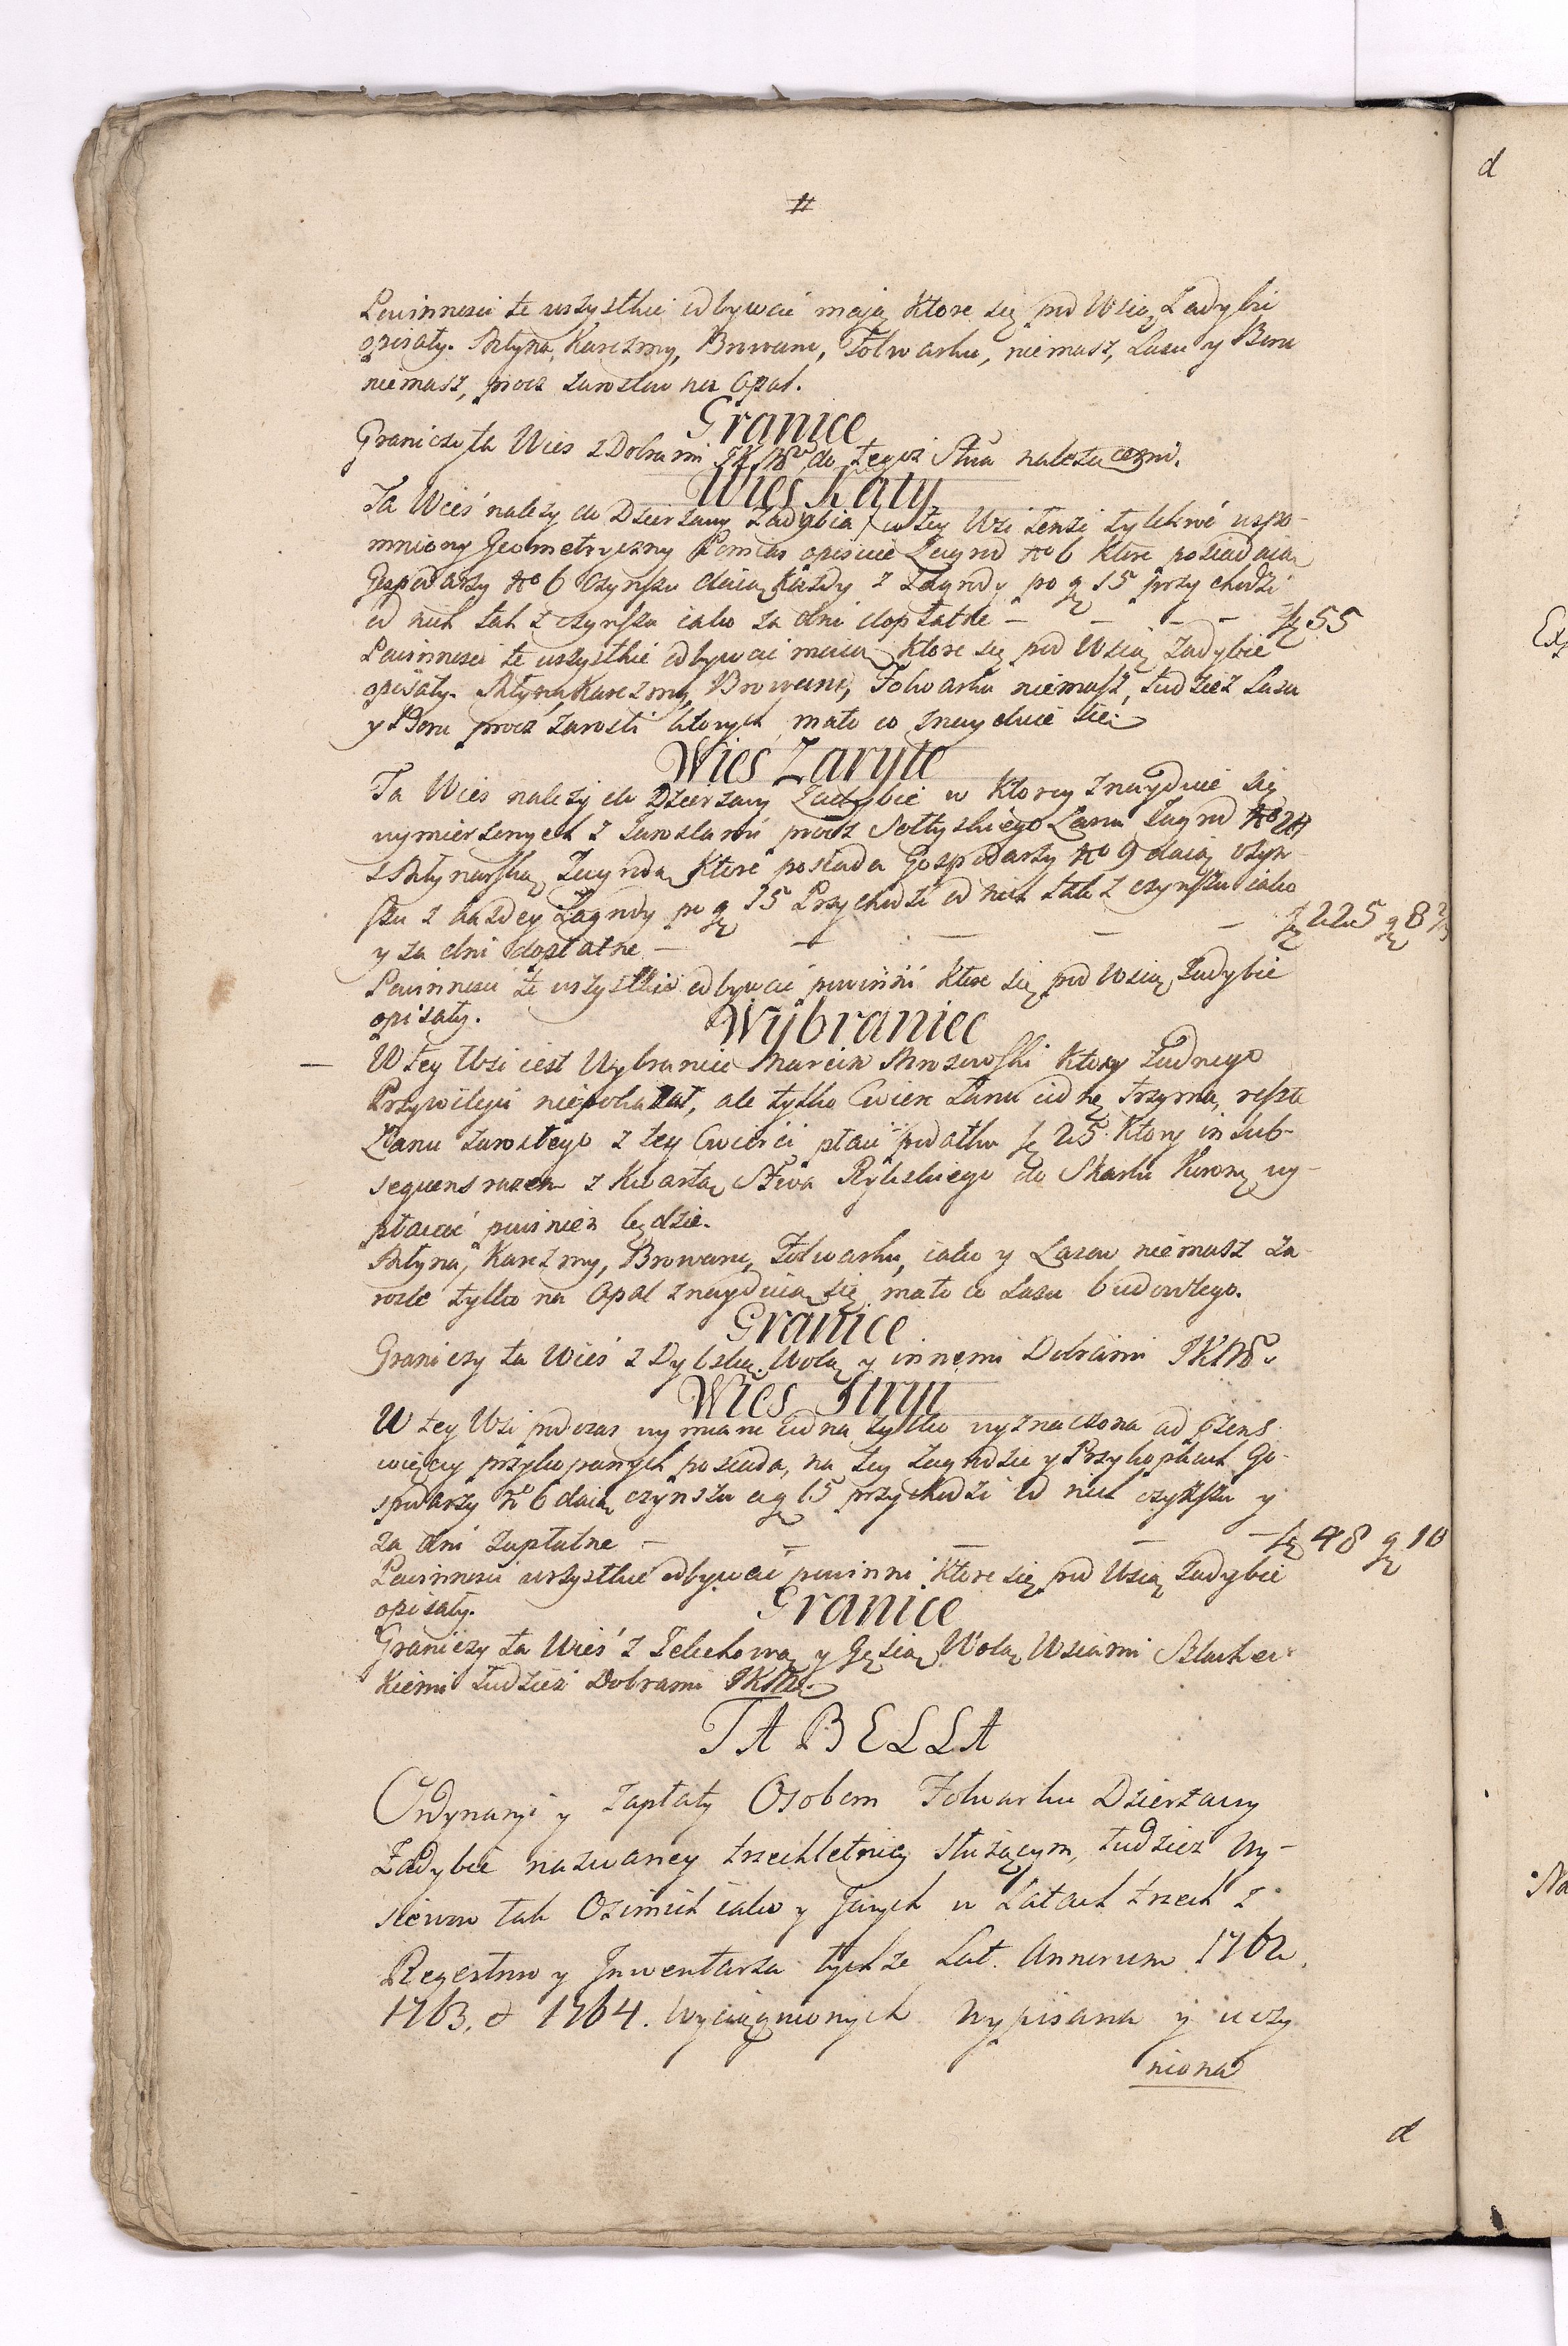 #
Powinnosci te wszystkie odbywać maią, ktore się pod Wsią Zadybie
opisały. Młyna, Karczmy, Browaru, Folwarku, niemasz, Lasu y Boru
niemasz, procz zarostow na Opał.
Granice
Graniczy ta Wies z Dobrami JKMci do tegoż Stwa należącemi.
Wies Kąty
Ta Wieś należy do Dzierzawy Zadybia, w tey Wsi tenże tylekroć wspo-
mniony Geometryczny Pomiar opisuie Zagrod No 6 ktore posiadaią
Gospodarzy No 6 Czynszu daią każdy z Zagrody po g 15 przychodzi
od nich tak z czynszu iako za dni dopłatne - - - - zł 55
Powinnosci te wszystkie odbywać maią ktore się pod Wsią Zadybie
opisały. Młyna, Karczmy, Browaru, Folwarku niemasz, tudziez Lasu
y Boru procz zarosli ktorych mało co znayduie się.
Wies Zaryte
Ta Wies należy do Dzierzawy Zadybie w ktorey znayduie się
wymierzonych z zarosłami procz Sołtyskiego Łanu Zagrod No 24
z Młynarską Zagrodą ktore posiada Gospodarzy No 9 daią czyn-
szu z każdey Zagrody po g 15 Przychodzi od nich tak z czynszu iako
y za dni dopłatne - - - - zł 225 g 8 2/3
Powinnosci te wszystkie odbywać powinni ktore się pod Wsią Zadybie
opisały.
Wybraniec
— W tey Wsi iest Wybraniec Marcin Mrozowski ktory żadnego
Przywileju niepokazał, ale tylko Cwierć Łanu iedną trzyma, reszta
Łanu zarosłego z tey Cwierci płaci podatku zł 25 ktory in sub-
sequens razem z Kwartą Stwa Ryckiego do Skarbu Koronn wy-
płacać powinien będzie.
Młyna, Karczmy, Browaru, Folwarku, iako y Lasow niemasz za-
rosle tylko na Opał znayduią się, mało co Lasu budowlego.
Granice
Graniczy ta Wieś z Dybską Wolą y innemi Dobrami JKMci.
Wies Stryi
W tey Wsi podczas wymiaru iedna tylko wyznaczona ad Cens
więcey przykopanych posiada, na tey Zagrodzie y Przykopkach Go-
spodarzy No 6 daią czynszu a g 15 przychodzi od nich czynszu y
za dni zapłatne - - - - zł 48 g 10
Powinnosci wszystkie odbywać powinni ktore się pod Wsią Zadybie
opisały.
Granice
Graniczy ta Wieś z Zelechową y Gęsią Wolą Wsiami Szlachec-
kiemi tudzież Dobrami JKMci.
TABELLA
Ordynaryi y zapłaty Osobom Folwarku Dzierzawy
Zadybie nazwaney trzechletniey służącym, tudzież Wy-
siewow tak Ozimich iako y Jarych w Latach trzech z
Regestrow y Jnwentarza tychże Lat. Annorum 1762,
1763, & 1764. Wyciągnionych wypisana y uczy
niona
d
d